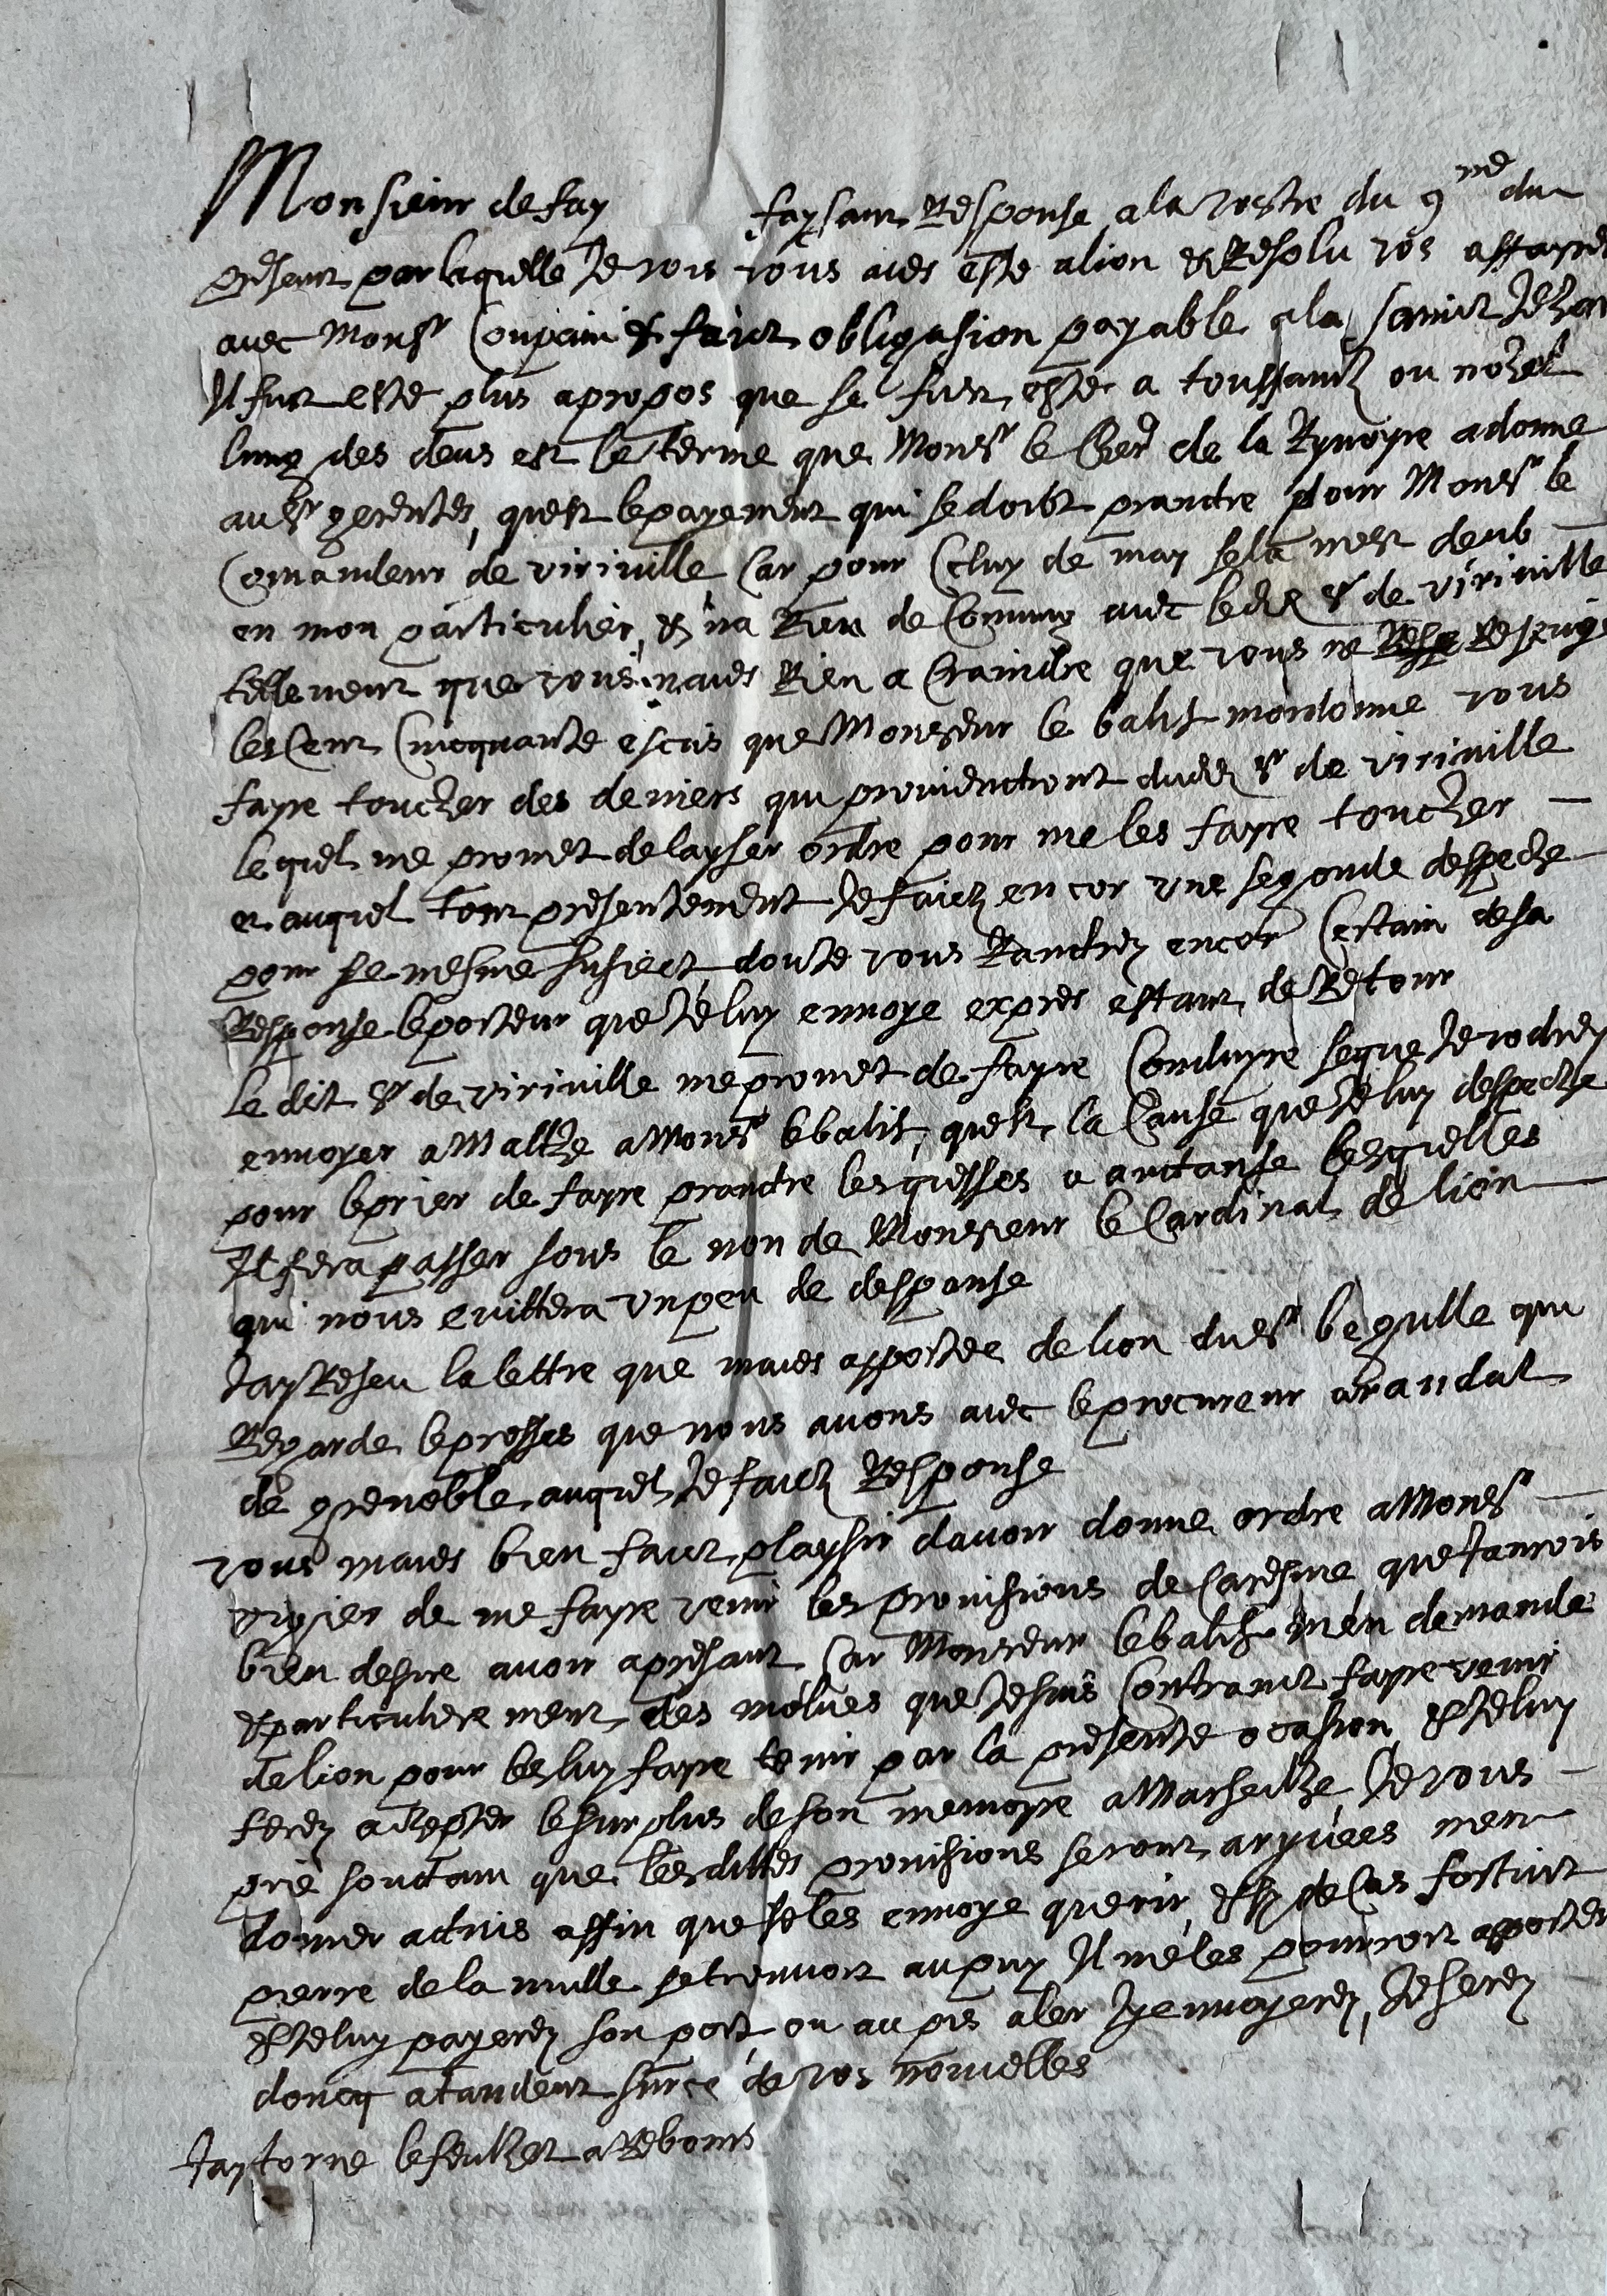 Monsieur de fay faysant Response a la vostre du 9me du
presant par laquelle Je vois vous aves este a lion & Resolu vos affayres
avec Monsr Coupain & faict obligasion payable a la sainct Jehan
Il fut este plus apropos que se fust este a toussainctz ou nohel
lung des deus est le terme que Monsr le Cher de la Rynoyre a donne
au sr gerentes, quest le payement qui se doibt prandre pour Monsr le
Comandeur de viriville Car pour Celuy de may sela mest deub
en mon particulier, & na Rien de Commung avec ledit sr de viriville
tellement que vous naves Rien a Craindre que vous ne Resevies
les Cent Cinquante escus que Monsieur le balif mordonne vous
fayre toucher des deniers qui proviendront dudit sr de viriville
lequel me promet de laysser ordre pour me les fayre toucher
et auquel tout presentement Je faictz encor une segonde despeche
pour se mesme susiect, donte vous Randrey encor Certain de sa
Response le porteur que Je luy envoye expres estant de Retour
Le dit sr de viriville me promet de fayre Conduyre se que Je vodrey
envoyer a Malthe a Monsr le balif, quest la Cause que Je luy despeche
pour le prier de fayre prandre les quesses a auctanse lesquelles
Il fera passer sous le non de Monsieur le Cardinal de lion
qui nous evittera un peu de despanse
Jay Reseu la lettre que maves apportee de lion du sr begulle qui
Regarde le prosses que nous avons avec le procureur abrandat
de grenoble auquel Je faictz Response
vous maves bien faict playsir davoir donne ordre a Monsr
de me fayre venir les provisions de Caresme que Jaurois
bien desire avoir apresant Car Monsieur le balif men demande
& particulierement des molues que Je suis Contrainct fayre venir
de lion pour les luy fayre tenir par la presente ocasion, & Je luy
ferey achepter le surplus de son memoyre a Marseilhe, Je vous
prie soudain que les dittes provisions seront aryvees men
donner advis affin que Je les envoye querir, & sy de Cas fortuit
pierre de la mulle se trouvoit au puy Il me les pourroit apporter
& Je luy payerey son port, ou au pis aler Jy envoyerey, Je serey
doncq atandent sur ce de vos nouvelles
Jay torne le feulhet a Rebours